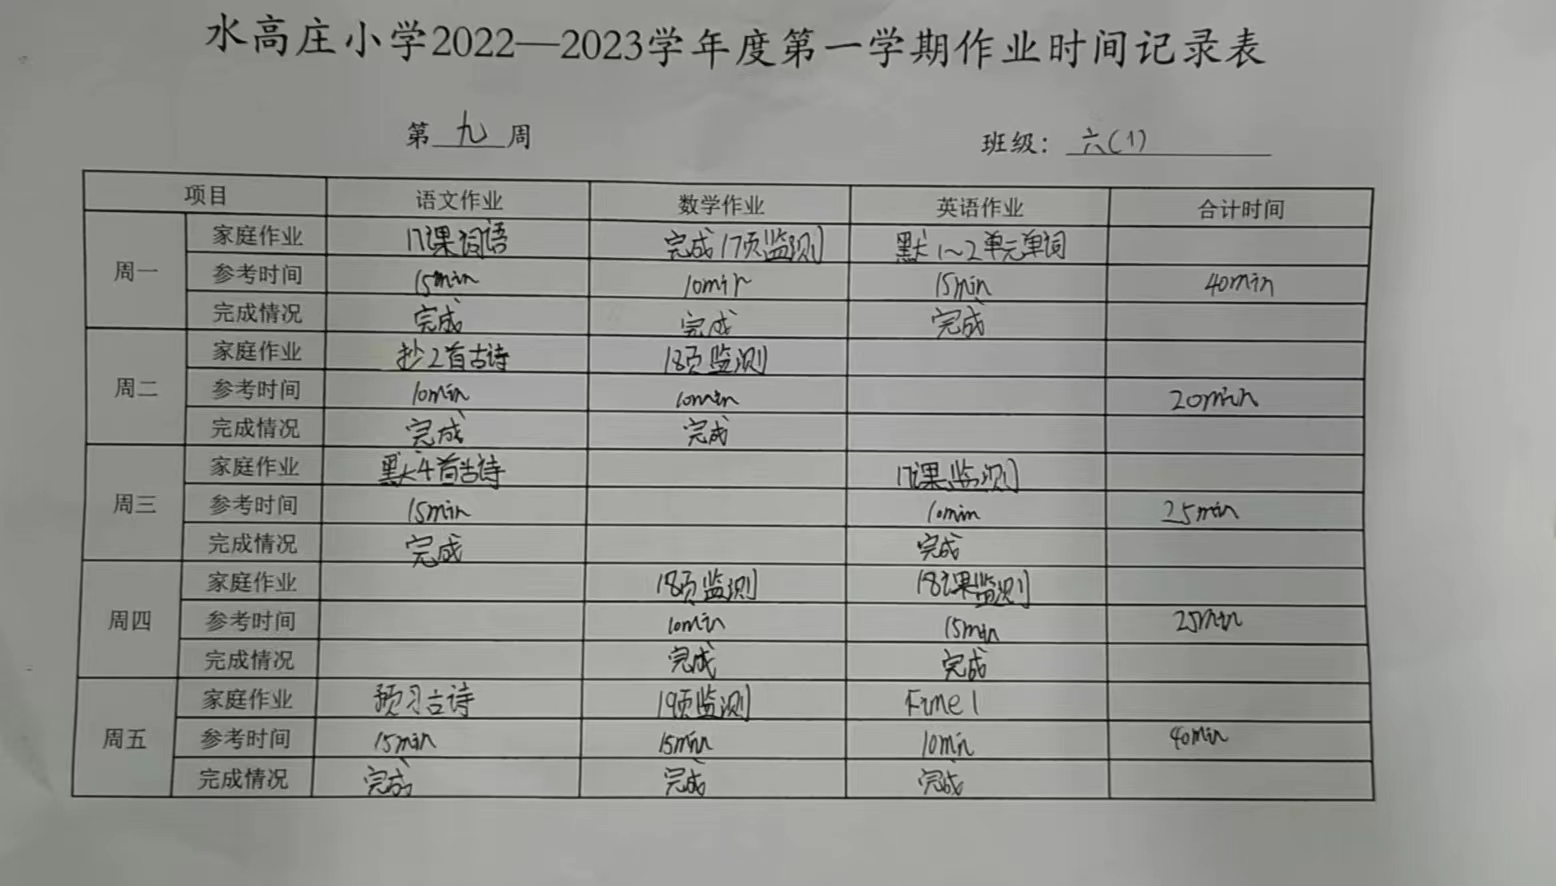 水高庄小学2022—2023学年度第一学期作业时间记录表
第 九 周 班级： 六(1)
项目 语文作业 数学作业 英语作业 合计时间
周一 家庭作业 17课词语 完成17页监测 默1~2单元单词
参考时间 15min 10min 15min 40min
完成情况 完成 完成 完成
周二 家庭作业 抄2首古诗 18页监测
参考时间 10min 10min 20min
完成情况 完成 完成
周三 家庭作业 默4首古诗 17课监测
参考时间 15min 10min 25min
完成情况 完成 完成
周四 家庭作业 18页监测 18课监测
参考时间 10min 15min 25min
完成情况 完成 完成
周五 家庭作业 预习古诗 19页监测
参考时间 15min 15min 10min 40min
完成情况 完成 完成 完成